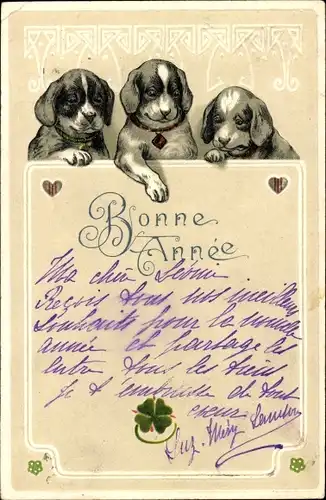 Bonne
Année
Ma chère Léonie
Reçois tous nos meilleurs
souhaits pour la nouvelle
année et partage les
entre tous les tiens
Je t'embrasse de tout
cœur
Suz.